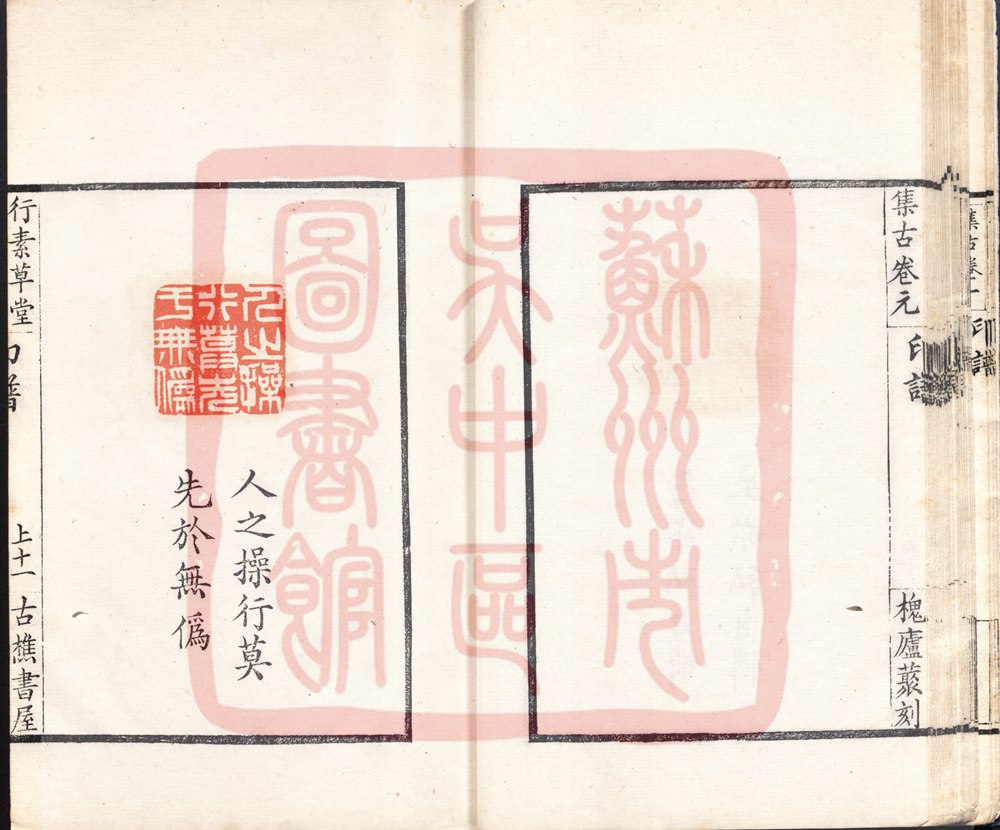 集古卷元
印譜
槐廬叢刻
蘇州市
吴中區
圖書館
人之操行莫先於無僞
人之操行莫
先於無僞
行素草堂
印譜
上十一
古樵書屋